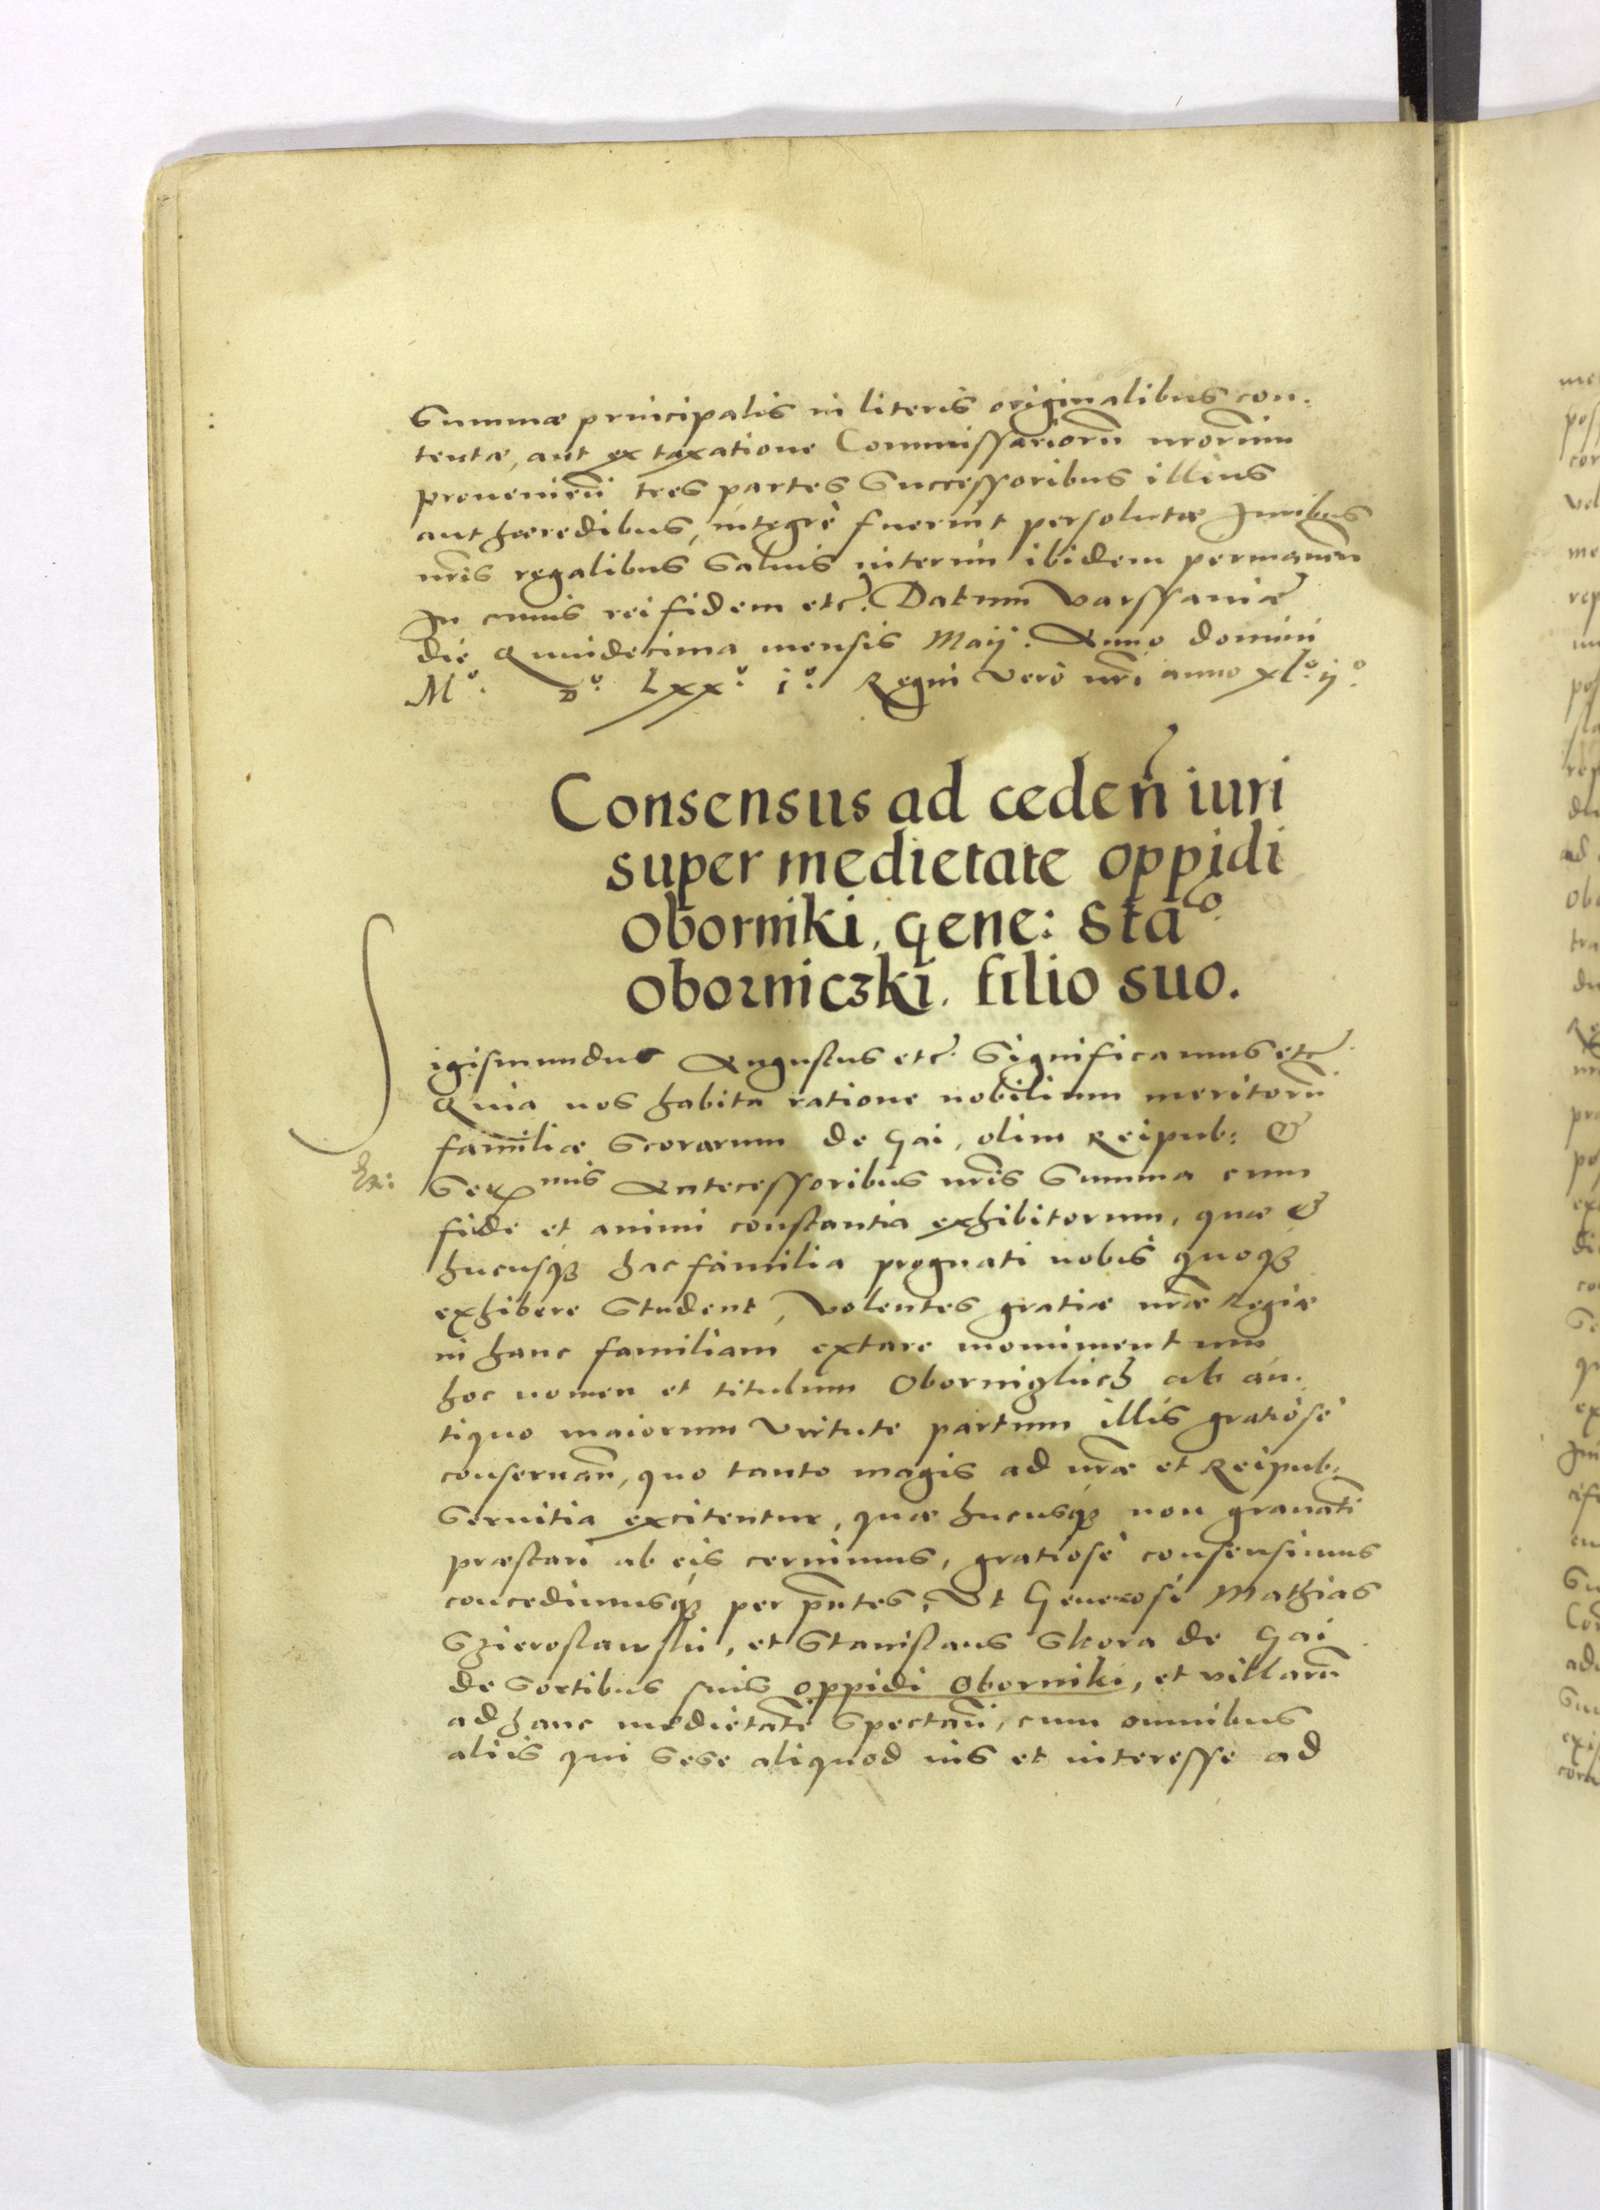 Summæ principalis in literis originalibus con-
tentæ, aut ex taxatione Commissariorū nrorum
prouenieñ tres partes Successoribus illius
aut hæredibus, integrè fuerint persolutæ Juribus
nris regalibus Saluis interim ibidem permaneñ
In cuius rei fidem etc. Datum Varssauiæ
die Quindecima mensis Maij. Anno domini
Mº. Dº. Lxxº. iº. Regni verò nri anno xlº.ijº.
Consensus ad cedeñ iuri
super medietate oppidi
Oborniki, gene: Staº.
Oborniczki. filio suo.
Sigismundus Augustus etc. Significamus etc.
Quia nos habita ratione nobilium meritorū
familiæ Scorarum de Gai, olim Reipub: &
Ser^mis Antecessoribus nris Summa cum
fide et animi constantia exhibitorum, quæ &
hucusq3 hac familia prognati nobis quoq3
exhibere Student, Volentes gratiæ nræ Regiæ
in hanc familiam extare monimentum
hoc nomen et titulum Obornizkich ab an-
tiquo maiorum Virtute partum illis gratiosè
conseruañ, quo tanto magis ad nræ et Reipub:
Seruitia excitentur, quæ hucusq3 non grauati
præstari ab eis cernimus, gratiosè consensimus
concedimusq3 per pñtes, Vt Generosi Mathias
Szieroslawski, et Stanislaus Skora de Gai
de Sortibus suis oppidi Oborniki, et villarū
ad hanc medietatē Spectañ, cum omnibus
aliis qui Sese aliquod ius et interesse ad